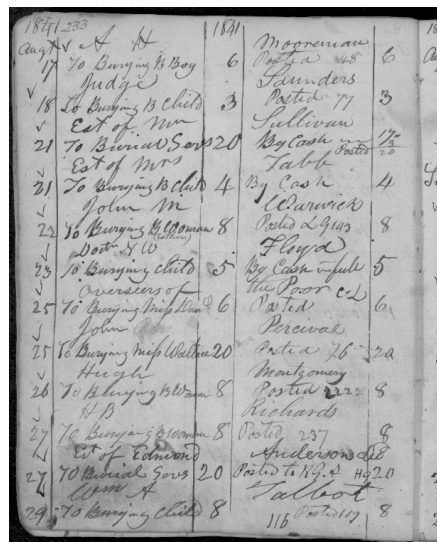 1841 233 1841
Augt A H Mooreman
17 To Burying B Boy 6 Posted 48 6
Judge Saunders
18 To Burying B Child 3 Posted 77 3
Est of Mrs Sullivan
21 To Burial Servs 20 By Cash 17- Posted 3 20
Est of Mrs Tabb
21 To Burying B Child 4 By Cash 4
John M Warwick
22 To Burying B Woman 8 Posted L G 143 8
Doctr N W Floyd
23 To Burying Child 5 By Cash in full 5
Overseers of the Poor C-L
25 To Burying Miss 6 Posted 6
John Percival
25 To Burying Miss Wallace 20 Posted 76 20
Hugh Montgomery
26 To Burying B Woman 8 Posted 222 8
H B Richards
27 To Burying B Woman 8 Posted 237 8
Est of Edmond Anderson
27 To Burial Servs 20 Posted to 20
Wm A Talbot
29 To Burying Child 8 116 Posted 109 8